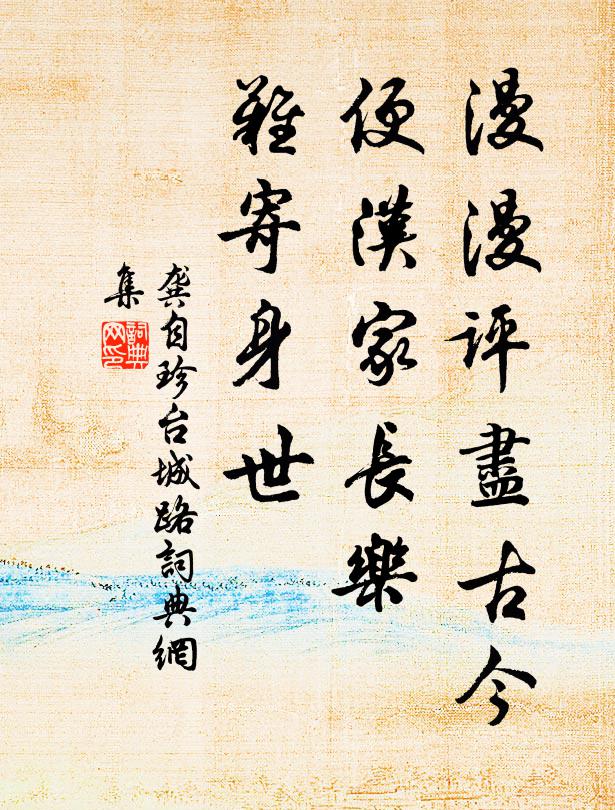 漫漫評盡古今
便漢家長樂
難寄身世
龔自珍台城路詞典網
集
詞典網印